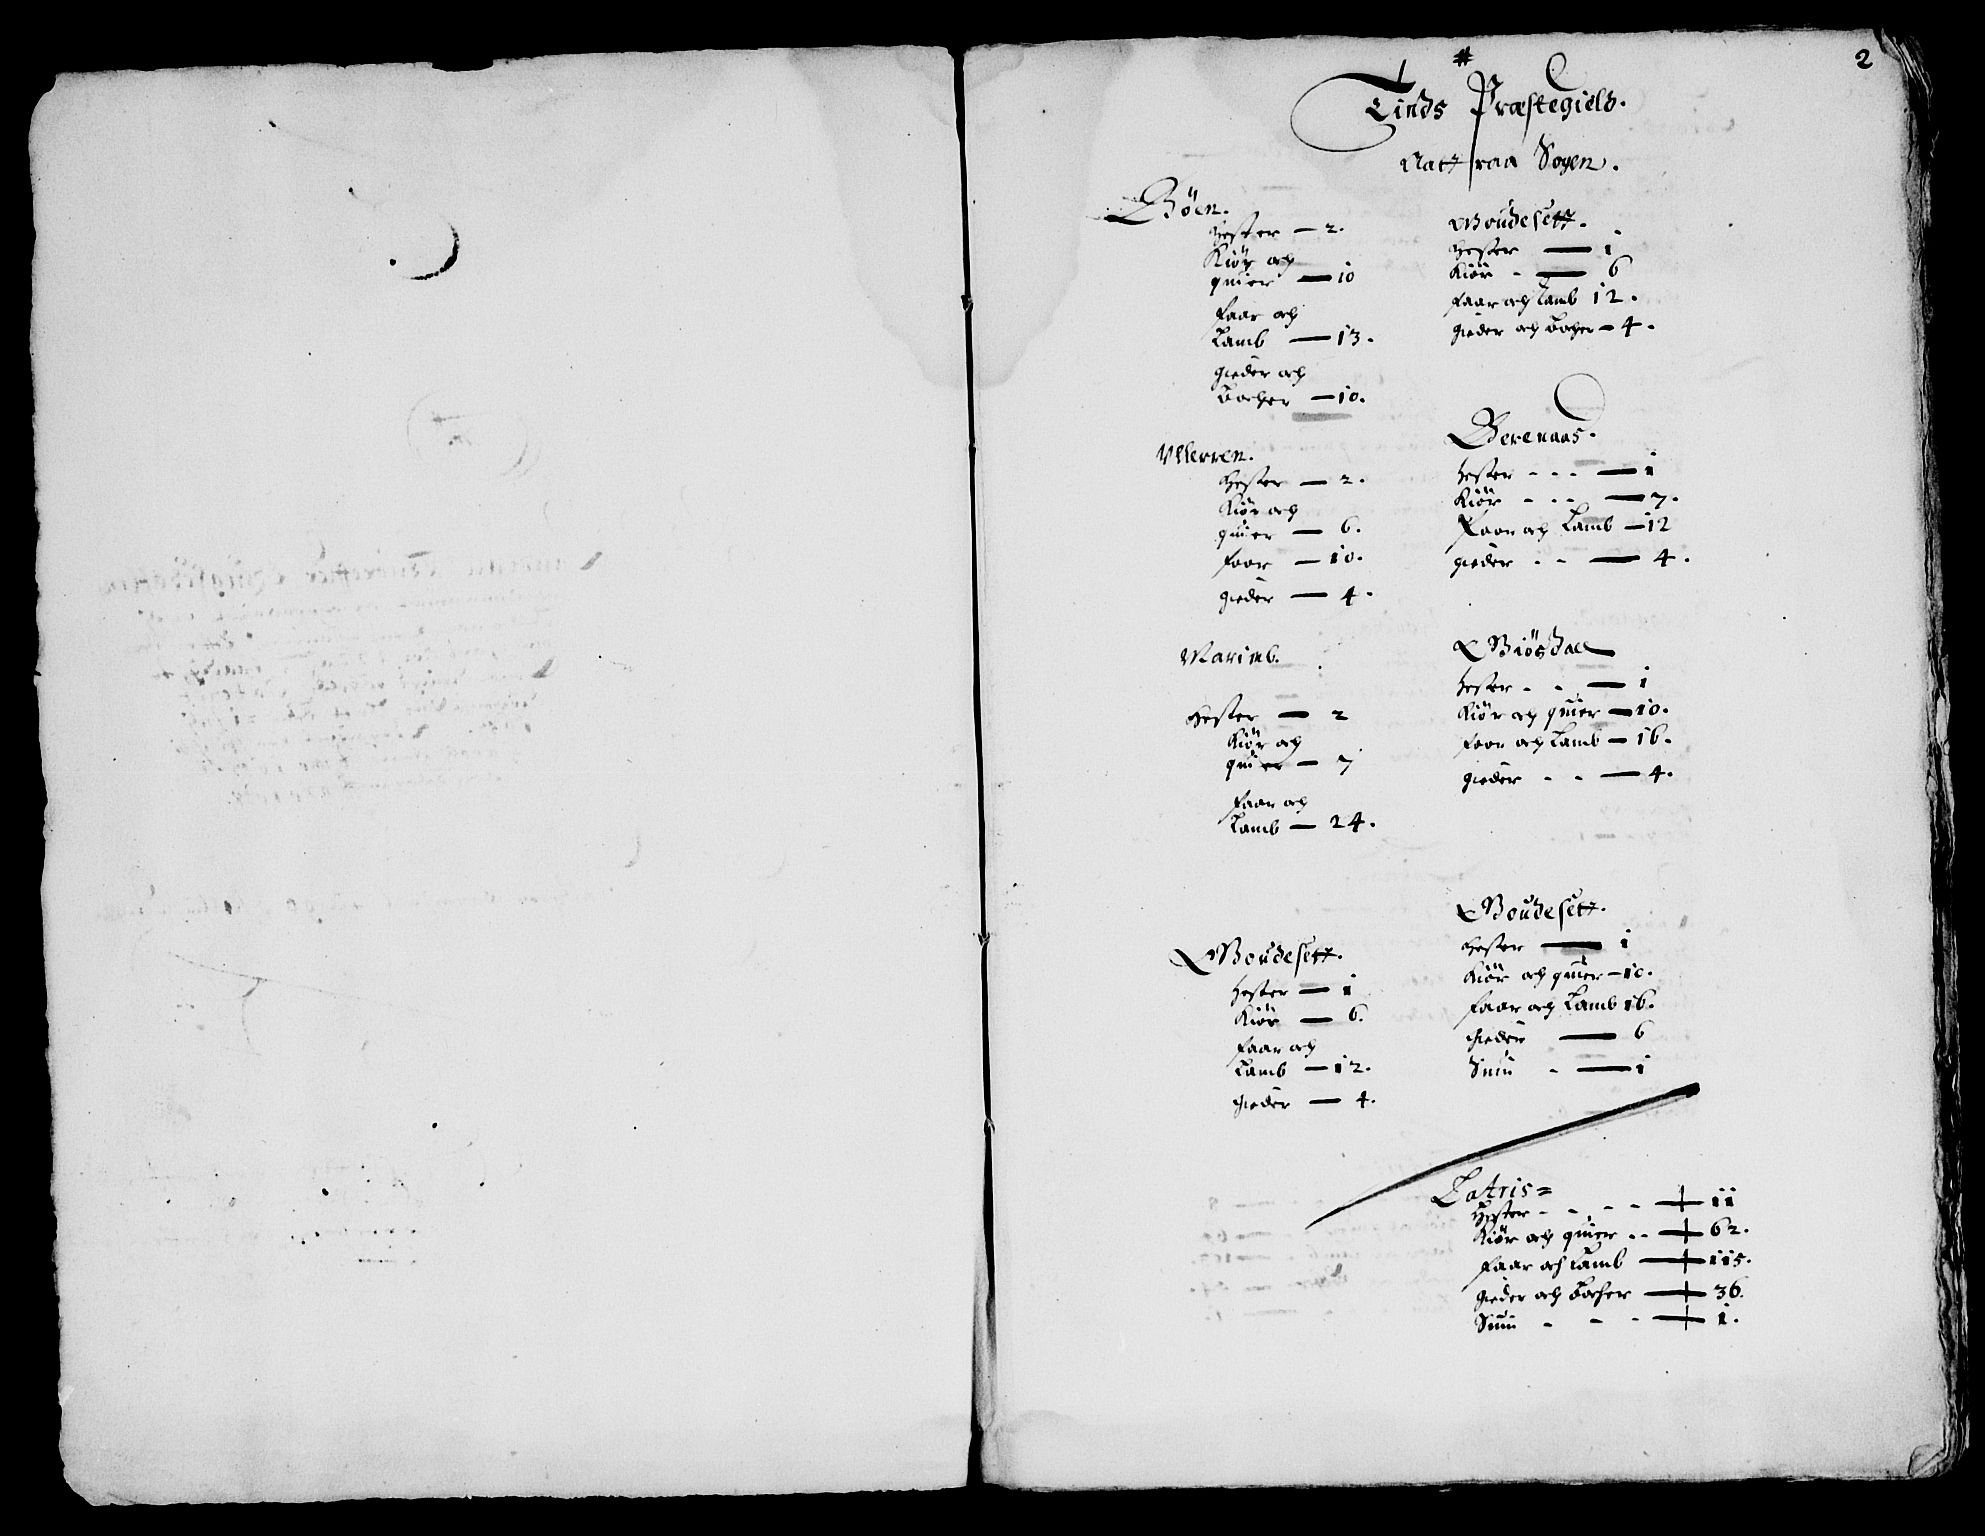 2
#
Tinds Præstegield.
Attraa Sogen.
Böen.
Hester — 2.
Kiör och
quier — 10
faar och
Lamb — 13.
gieder och
bocher — 10.
Ullerren.
Hester — 2.
Kiör och
quier — 6.
faar — 10.
gieder — 4.
Marimb.
Hester — 2
Kiör och
quier — 7
faar och
Lamb — 24.
Boudesett.
Hester — 1
Kiör — 6.
faar och
Lamb — 12.
gieder — 4.
Boudesett.
Hester — 1
Kiör - — 6
faar och Lamb 12.
gieder och bocher — 4.
Berenaas.
Hester - - - — 1
Kiör - - - — 7.
Faar och Lamb — 12
gieder - - — 4.
Biösdael
Hester - - — 1
Kiör och quier — 10.
faar och Lamb — 16.
gieder - - — 4.
Boudesett.
Hester — 1
Kiör och quier — 10.
faar och Lamb 16.
gieder — 6
Suin - — 1
Latris=
Hester - - - - — 11
Kiör och quier - - — 62.
faar och Lamb — 115.
gieder och bocher — 36.
Suin - - - — 1.